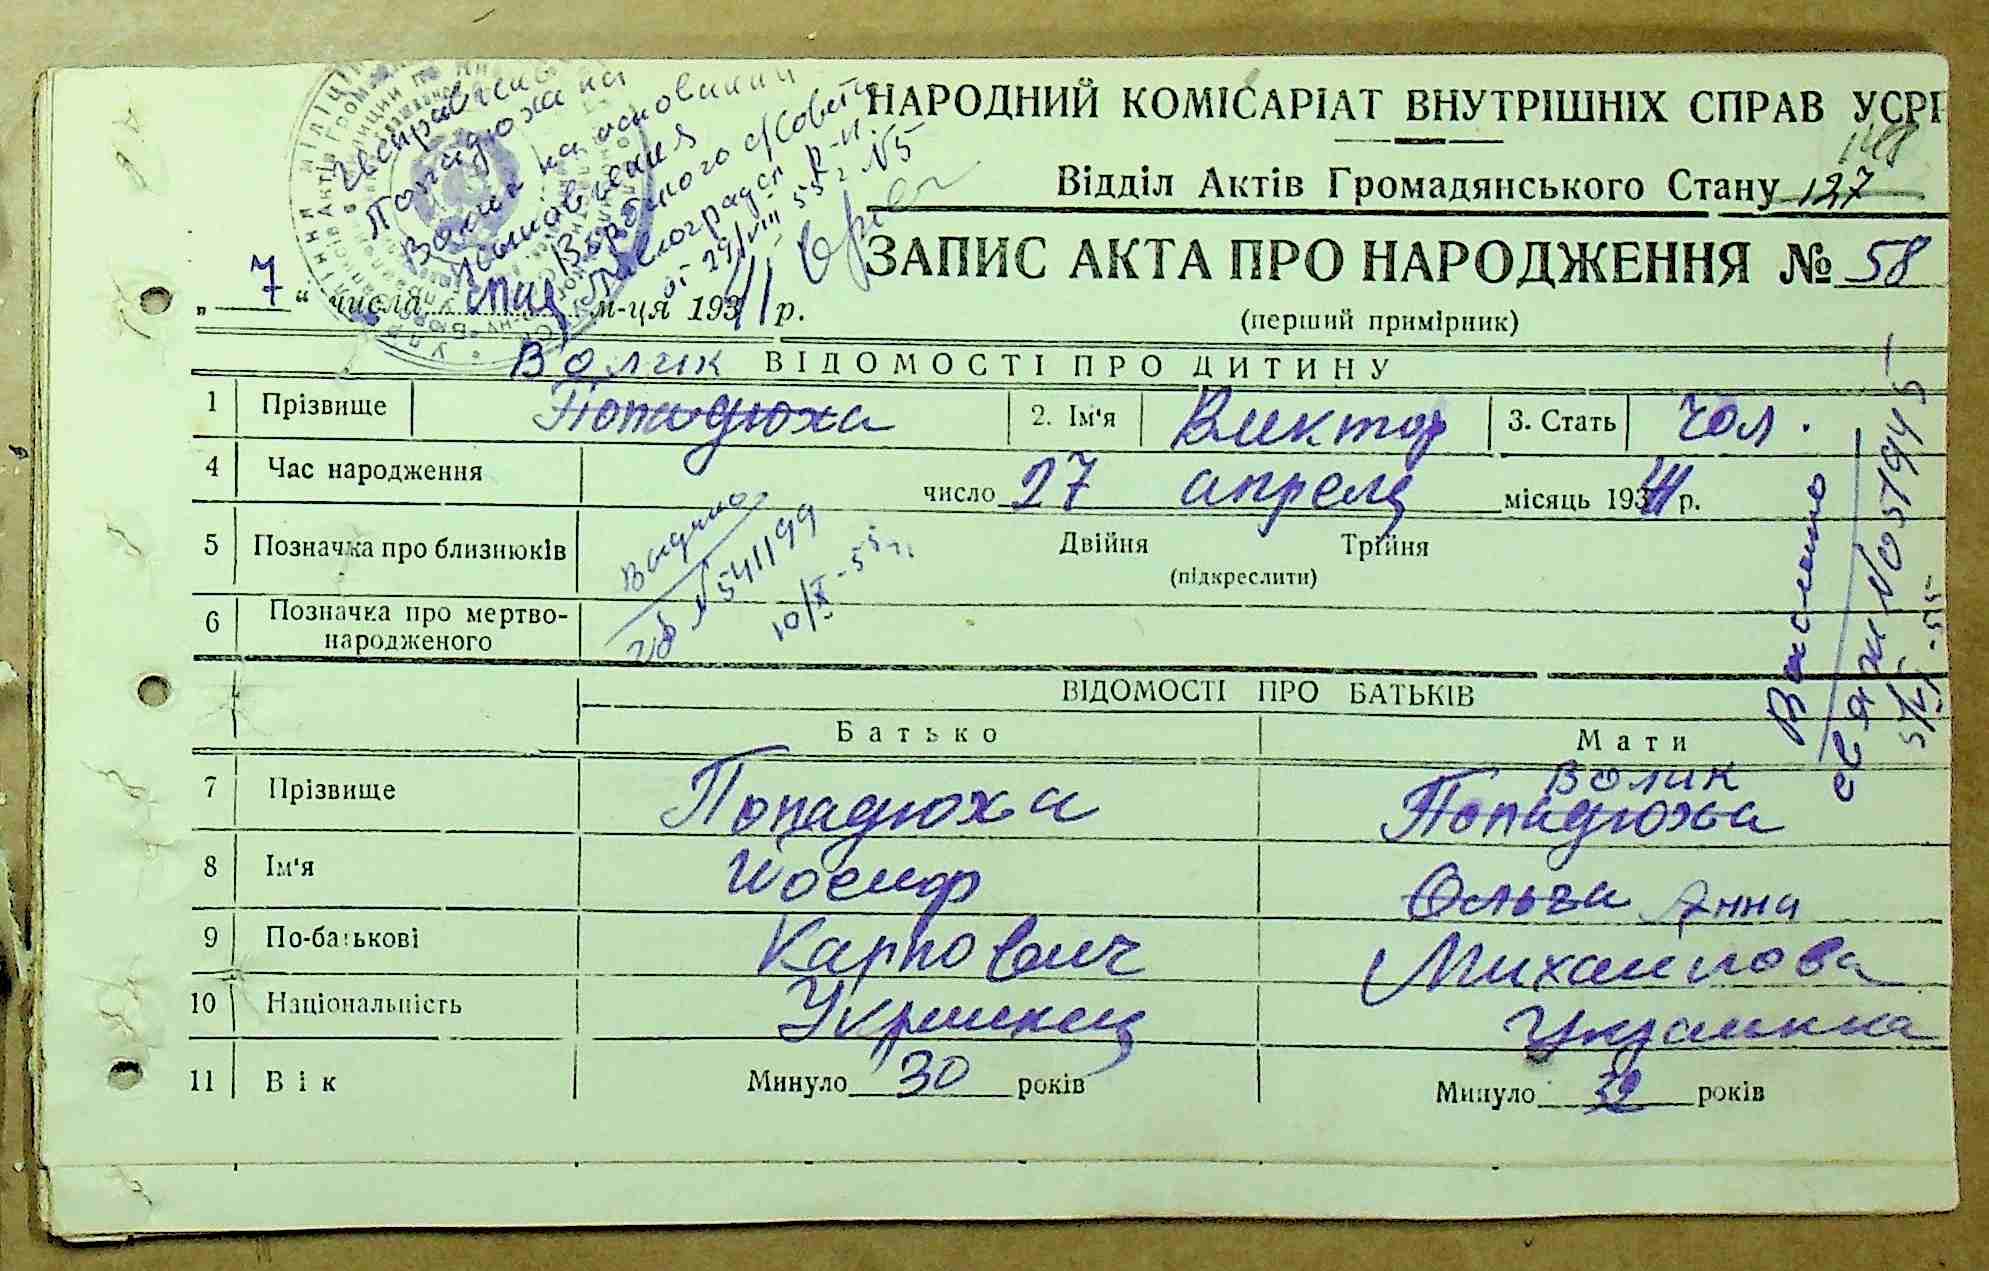 НАРОДНИЙ КОМІСАРІАТ ВНУТРІШНІХ СПРАВ УСРР
148
Відділ Актів Громадянського Стану 127
ЗАПИС АКТА ПРО НАРОДЖЕННЯ № 58
(перший примірник)
Исправлено
Попадюха на
Волик на основании
усыновления
Вербного с/Совета
Павлоградск р-н.
от 29/VIII 55 г N5
„ 7 “ числа м-ця 1941 р.
Волик
ВІДОМОСТІ ПРО ДИТИНУ
1 Прізвище Попадюха 2. Ім'я Виктор 3. Стать чол.
4 Час народження число 27 апреля місяць 1941 р.
5 Позначка про близнюків Двійня Трійня
(підкреслити)
6 Позначка про мертво-
народженого
Видано
N 541199
10/X-55 г.
Выслано
N 057945
ВІДОМОСТІ ПРО БАТЬКІВ
Батько Мати
Волик
7 Прізвище Попадюха Попадюха
8 Ім'я Иосиф Ольга Анна
9 По-батькові Карпович Михаилова
10 Національність Украинец Украинка
11 Вік Минуло 30 років Минуло 32 років